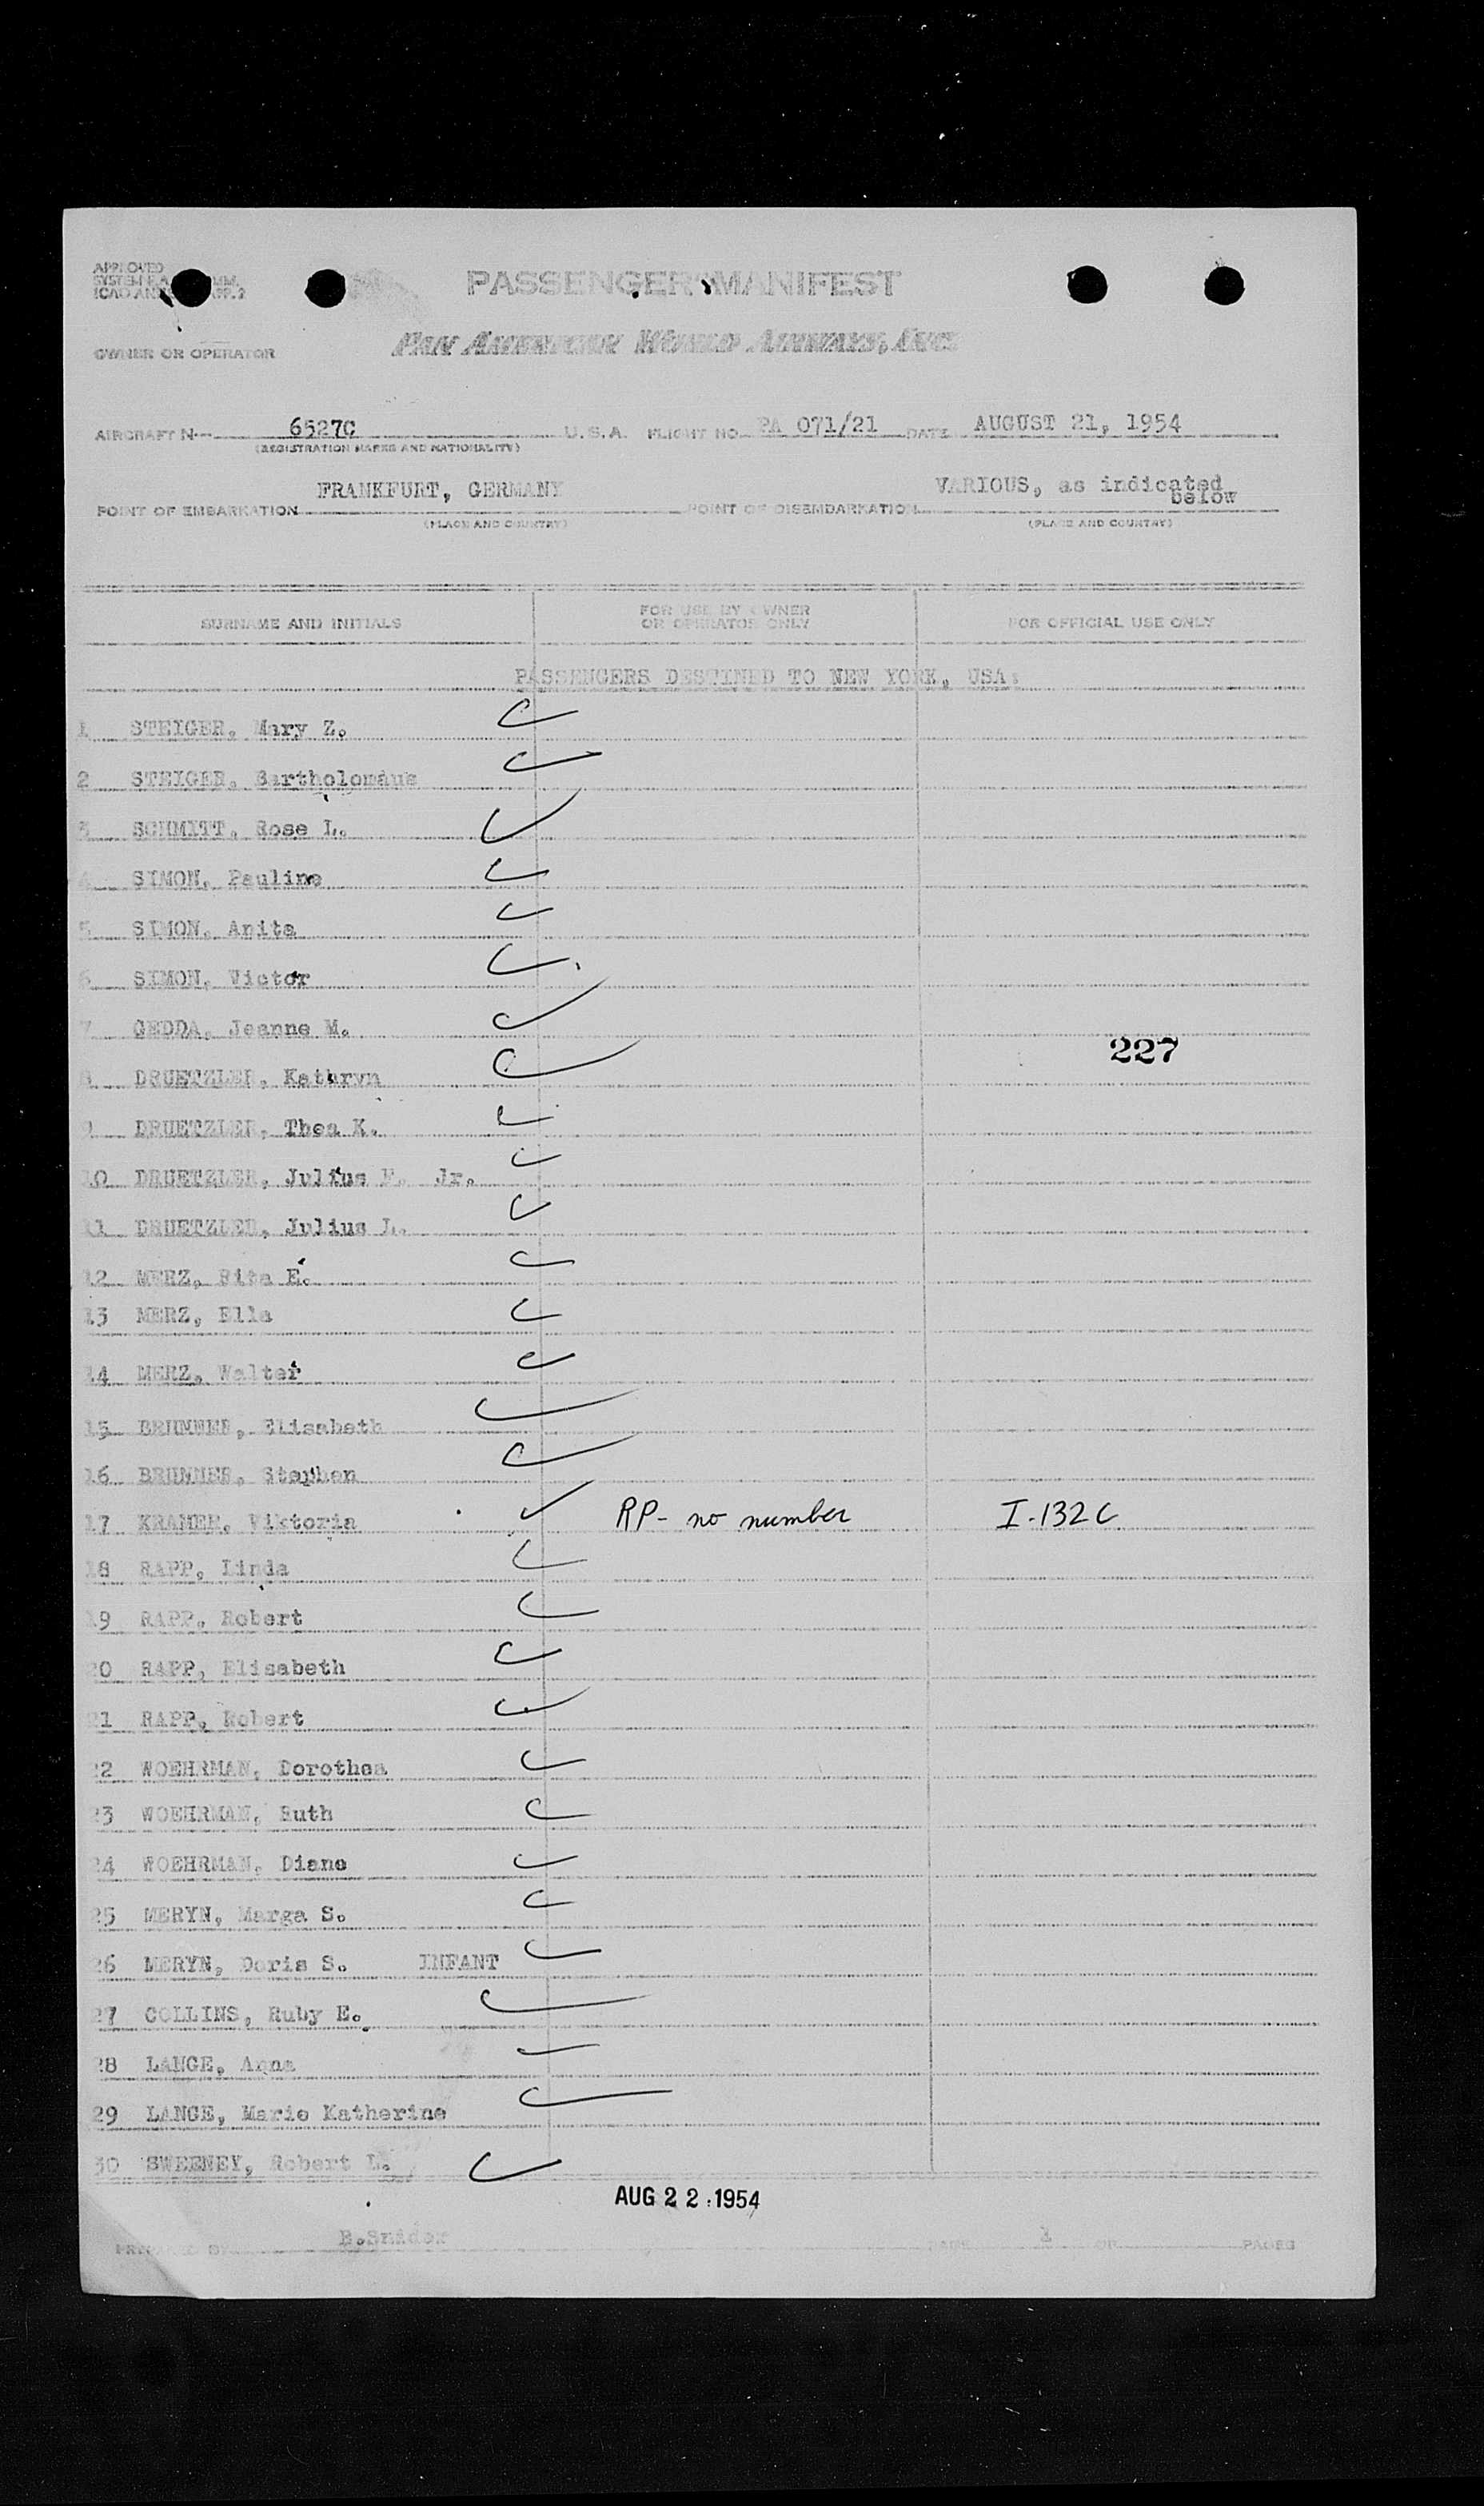 APPROVED
PASSENGER MANIFEST
OWNER OR OPERATOR
PAN AMERICAN WORLD AIRWAYS, INC.
AIRCRAFT N 6527C U.S.A. FLIGHT NO. PA 071/21 DATE AUGUST 21, 1954
(REGISTRATION MARKS AND NATIONALITY)
FRANKFURT, GERMANY VARIOUS, as indicated below
POINT OF EMBARKATION POINT OF DISEMBARKATION
(PLACE AND COUNTRY) (PLACE AND COUNTRY)
SURNAME AND INITIALS FOR USE BY OWNER OR OPERATOR ONLY FOR OFFICIAL USE ONLY
PASSENGERS DESTINED TO NEW YORK, USA:
1 STEIGER, Mary Z.
2 STEIGER, Bartholomäus
3 SCHMITT, Rose L.
4 SIMON, Pauline
5 SIMON, Anita
6 SIMON, Victor
7 GEDDA, Jeanne M.
227
8 DRUETZLER, Kathryn
9 DRUETZLER, Thea K.
10 DRUETZLER, Julius F. Jr.
11 DRUETZLER, Julius L.
12 MERZ, Rita E.
13 MERZ, Ella
14 MERZ, Walter
15 BRUNNER, Elisabeth
16 BRUNNER, Stephan
17 KRAMER, Viktoria RP- no number I-132C
18 RAPP, Linda
19 RAPP, Robert
20 RAPP, Elisabeth
21 RAPP, Robert
22 WOEHRMAN, Dorothea
23 WOEHRMAN, Ruth
24 WOEHRMAN, Diane
25 MERYN, Marga S.
26 MERYN, Doris S. INFANT
27 COLLINS, Ruby E.
28 LANGE, Anna
29 LANGE, Marie Katherine
30 SWEENEY, Robert L.
AUG 22 1954
PREPARED BY B.Snider PAGE 1 OF PAGES